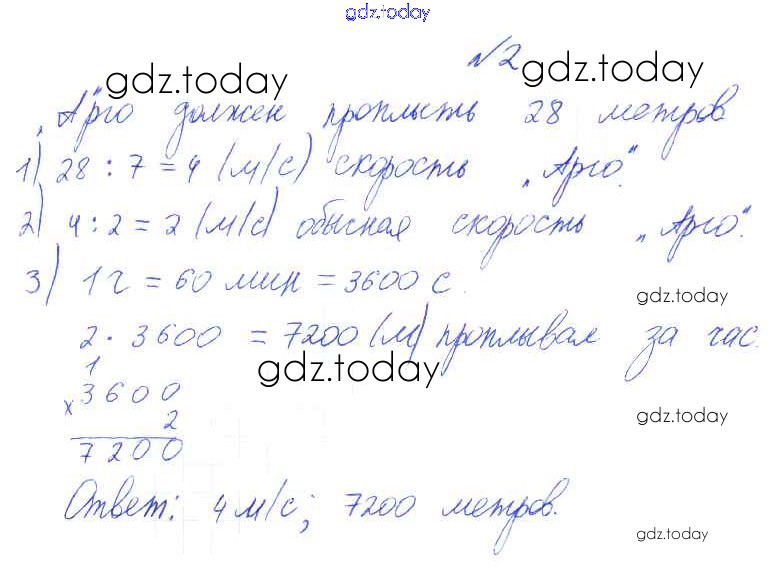 gdz.today
№2
gdz.today gdz.today
„Арго" должен проплыть 28 метров
1) 28 : 7 = 4 (м/с) скорость „Арго".
2) 4 : 2 = 2 (м/с) обычная скорость „Арго".
3) 1 г = 60 мин = 3600 с.
gdz.today
2 · 3600 = 7200 (м) проплывал за час.
gdz.today
1
× 3600
2
gdz.today
7200
Ответ: 4 м/с; 7200 метров.
gdz.today